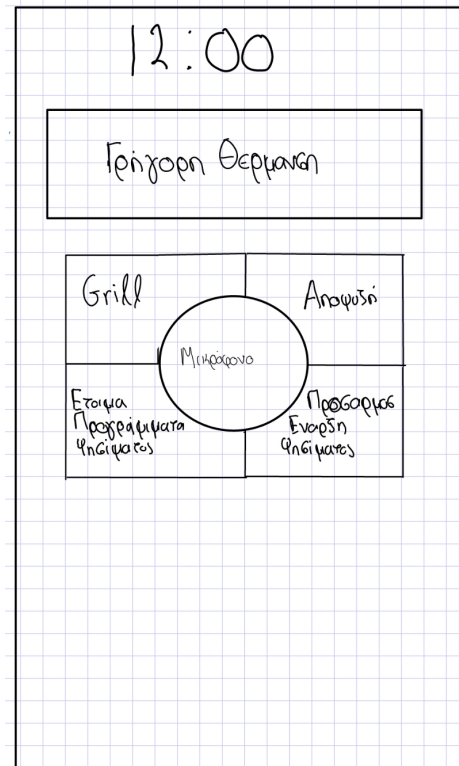 12:00
Γρήγορη Θέρμανση
Grill
Αποψυξη
Μικρόφωνο
Ετοιμα
Προγράμματα
Ψησίματος
Εναρξη
Ψησίματος